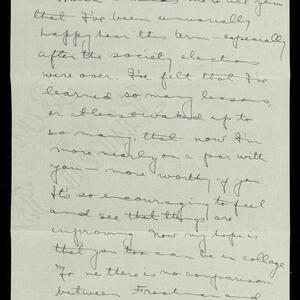 me to tell you
that I've been unusually
happy here this term – especially
after the society elections
were over. I've felt that I've
learned so many lessons,
or at least waked up to
so many, that now I'm
more nearly on a par with
you – more worthy of you
It's so encouraging to feel
and see that things are
improving. Now my hope is
that you too can be in college
To me there is no comparison
between Freshman and